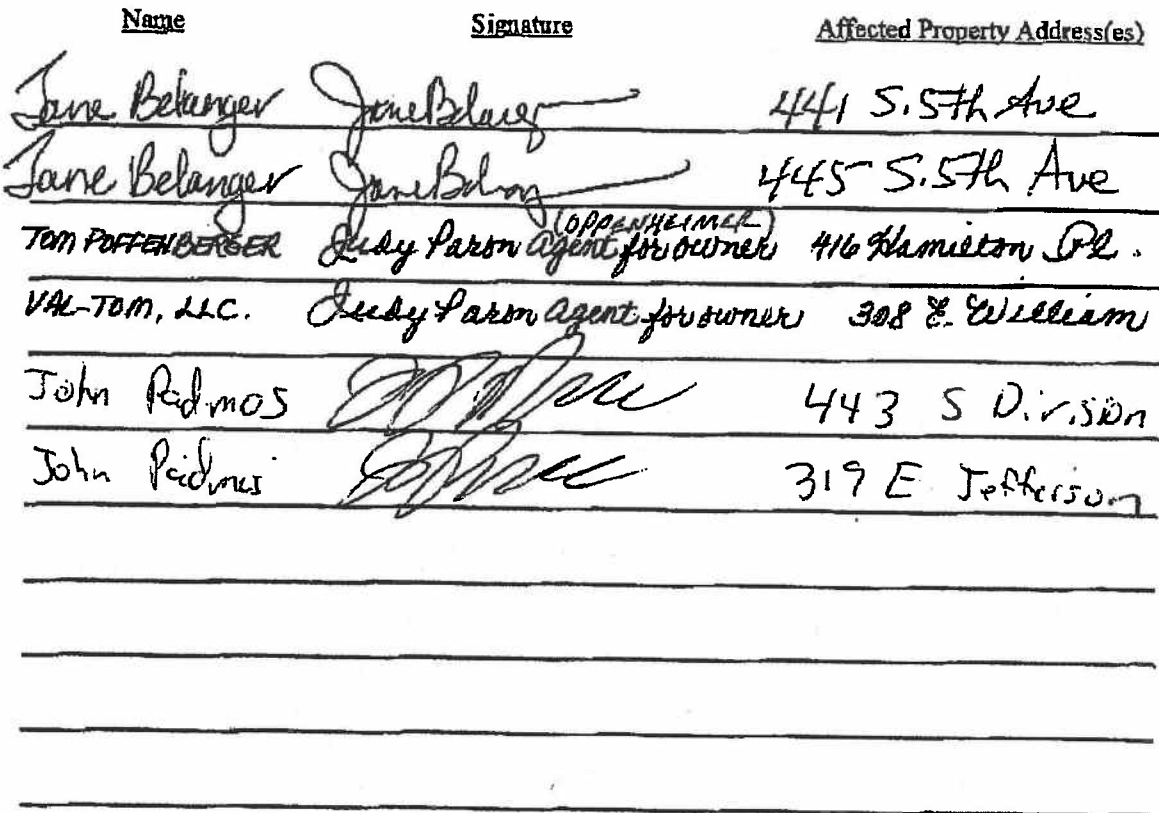 Name Signature Affected Property Address(es)
Jane Belanger Jane Belanger 441 S. 5th Ave
Jane Belanger Jane Belanger 445 S. 5th Ave
(OPPENHEIMER)
TOM POFFENBERGER Judy Parson agent for owner 416 Hamilton Pl.
VAL-TOM, LLC. Judy Parson agent for owner 308 E. William
John Padmos 443 S Division
John Padmos 319 E Jefferson